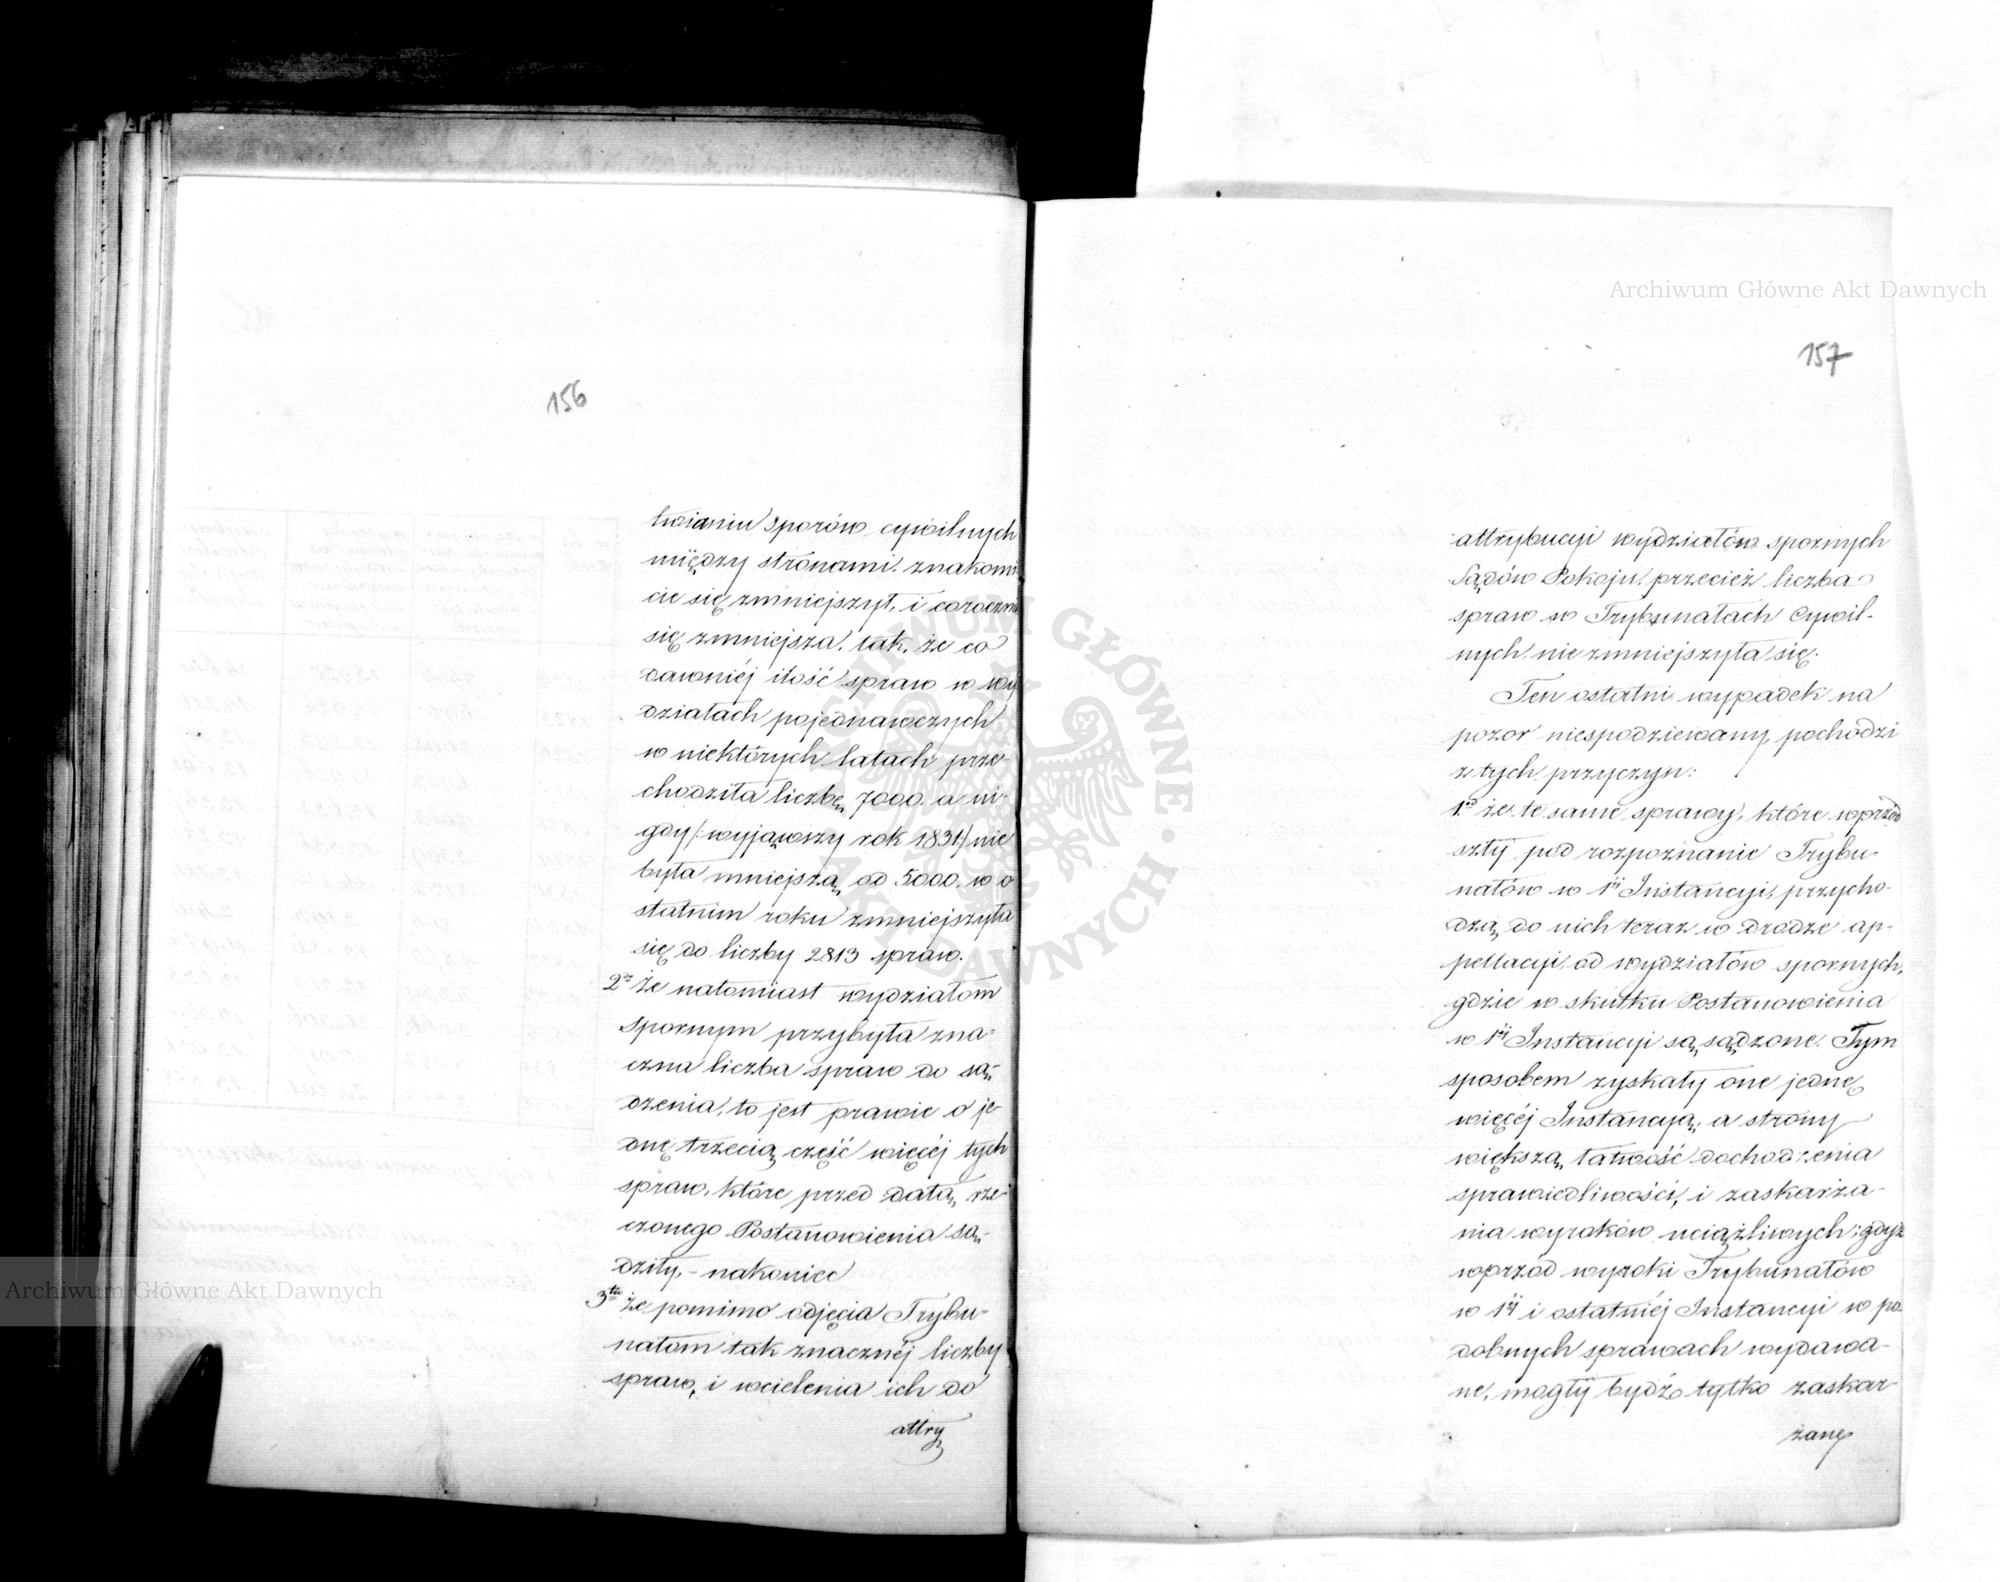 156
twianiu sporów cywilnych
między stronami znakomi
cie się zmniejszył, i corocznie
się zmniejsza, tak, że co
dawniéj ilość spraw w wy
działach pojednawczych
w niektórych latach prze-
chodziła liczbę 7000. a ni-
gdy /: wyjąwszy rok 1831 :/ nie
była mniejszą od 5000. w o
statnim roku zmniejszyła
się do liczby 2813 spraw.
2re że natomiast wydziałom
spornym przybyła zna-
czna liczba spraw do są-
dzenia, to jest prawie o je-
dnę trzecią część więcéj tych
spraw, które przed datą rze-
czonego Postanowienia są-
dziły, - nakoniec
3tie że pomimo odjęcia Trybu-
nałom tak znacznéj liczby
spraw, i wcielenia ich do
attry
Archiwum Główne Akt Dawnych
ARCHIWUM GŁÓWNE AKT DAWNYCH
Archiwum Główne Akt Dawnych
157
attrybucyi wydziałów spornych
Sądów Pokoju, przecież liczba
spraw w Trybunałach Cywil-
nych nie zmniejszyła się.
Ten ostatni wypadek na
pozor niespodziewany, pochodzi
z tych przyczyn:
1. że te same sprawy, które wprzód
szły pod rozpoznanie Trybu-
nałów w 1éj Instancyi, przycho-
dzą do nich teraz w drodze ap-
pellacyi od wydziałów spornych,
gdzie w skutku Postanowienia
w 1éj Instancyi są sądzone. Tym
sposobem zyskały one jednę
więcéj Instancyą, a strony
większą łatwość dochodzenia
sprawiedliwości, i zaskarża-
nia wyroków uciążliwych; gdyż
wprzód wyroki Trybunałów
w 1éj i ostatniéj Instancyi w po
dobnych sprawach wydawa-
ne, mogły bydź tylko zaskar-
żane